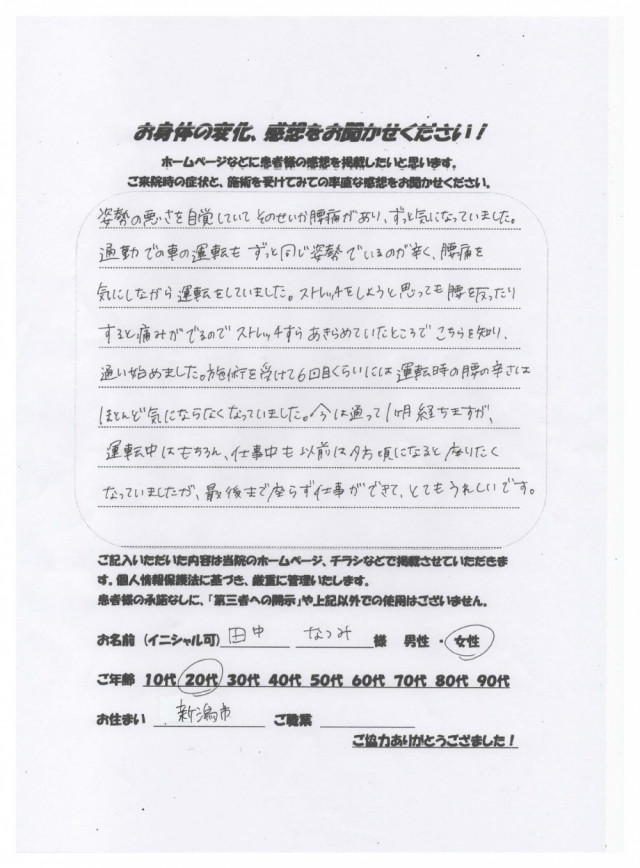 お身体の変化、感想をお聞かせください！
ホームページなどに患者様の感想を掲載したいと思います。
ご来院時の症状と、施術を受けてみての率直な感想をお聞かせください。
姿勢の悪さを自覚していてそのせいか腰痛があり、ずっと気になっていました。
通勤での車の運転もずっと同じ姿勢でいるのが辛く、腰痛を
気にしながら運転をしていました。ストレッチをしようと思っても腰を反ったり
すると痛みがでるのでストレッチすらあきらめていたところでこちらを知り、
通い始めました。施術を受けて6回目くらいには運転時の腰の辛さは
ほとんど気にならなくなっていました。今は通って1ヶ月経ちますが、
運転中はもちろん、仕事中も以前は夕方頃になると座りたく
なっていましたが、最後まで座らず仕事ができて、とてもうれしいです。
ご記入いただいた内容は当院のホームページ、チラシなどで掲載させていただきま
す。個人情報保護法に基づき、厳重に管理いたします。
患者様の承諾なしに、「第三者への開示」や上記以外での使用はございません。
お名前（イニシャル可） 田中 なつみ 様 男性 ・ 女性
ご年齢 10代 20代 30代 40代 50代 60代 70代 80代 90代
お住まい 新潟市 ご職業
ご協力ありがとうござました！